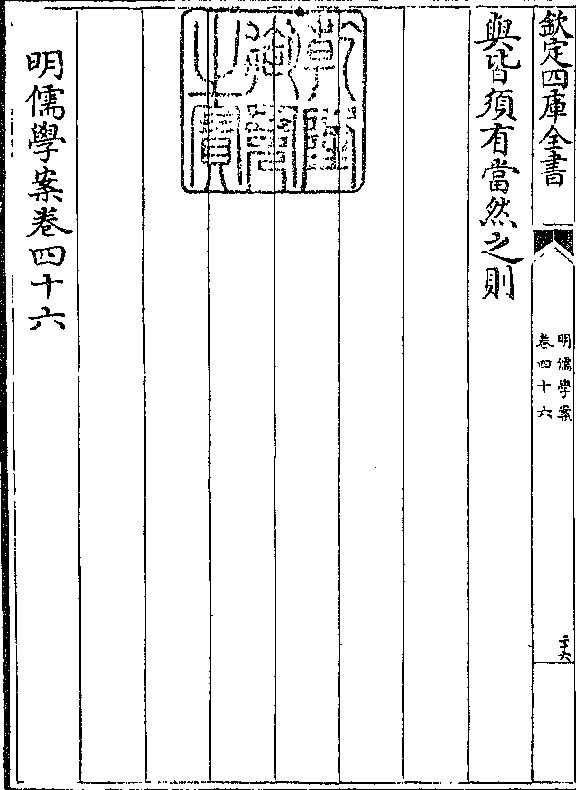 欽定四庫全書
明儒學案
卷四十六
與皆須有當然之則
乾隆
御覽
之寶
明儒學案卷四十六